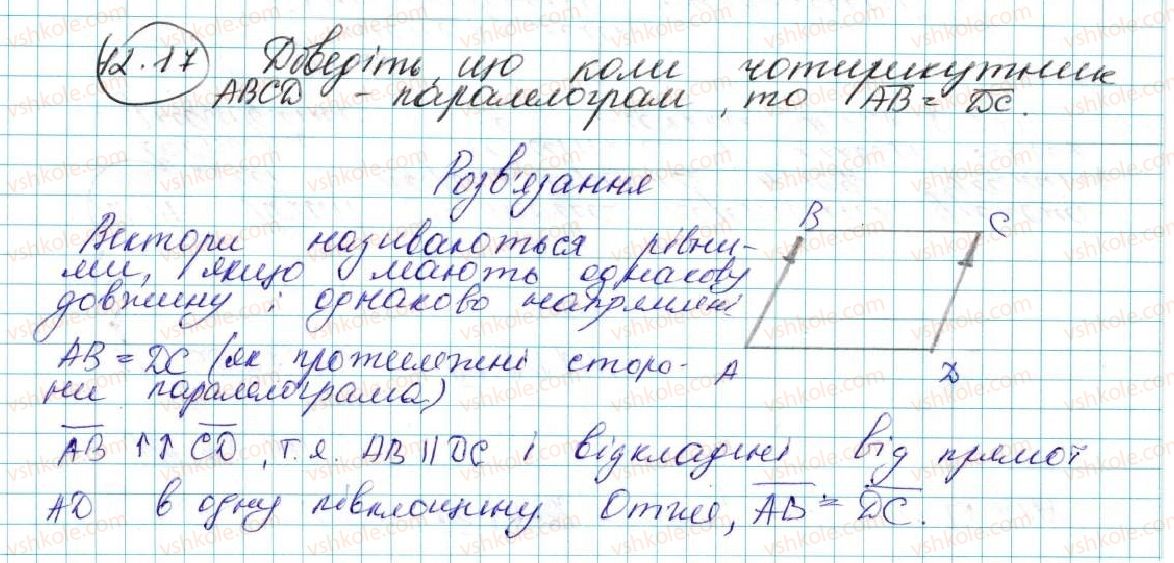 12.17 Доведіть, що коли чотирикутник
ABCD - паралелограм, то AB = DC.
Розв'язання
Вектори називаються рівни-
ми, якщо мають однакову
довжину і однаково напрямлені
AB = DC (як протилежні сторо-
ни паралелограма)
AB ↑↑ CD, т.я. AB || DC і відкладені від прямої
AD в одну півплощину. Отже, AB = DC.
B
C
A
D
vshkole.com